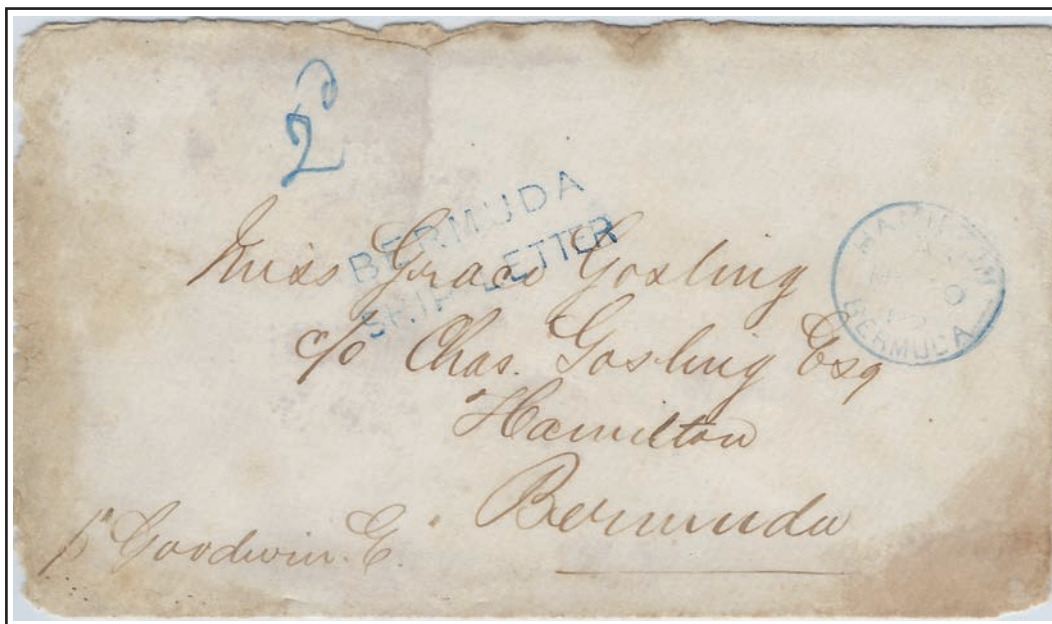 2
BERMUDA
SHIP LETTER
HAMILTON
BERMUDA
Miss Grace Gosling
c/o Chas. Gosling Esq
Hamilton
Bermuda
p Goodwin. G.